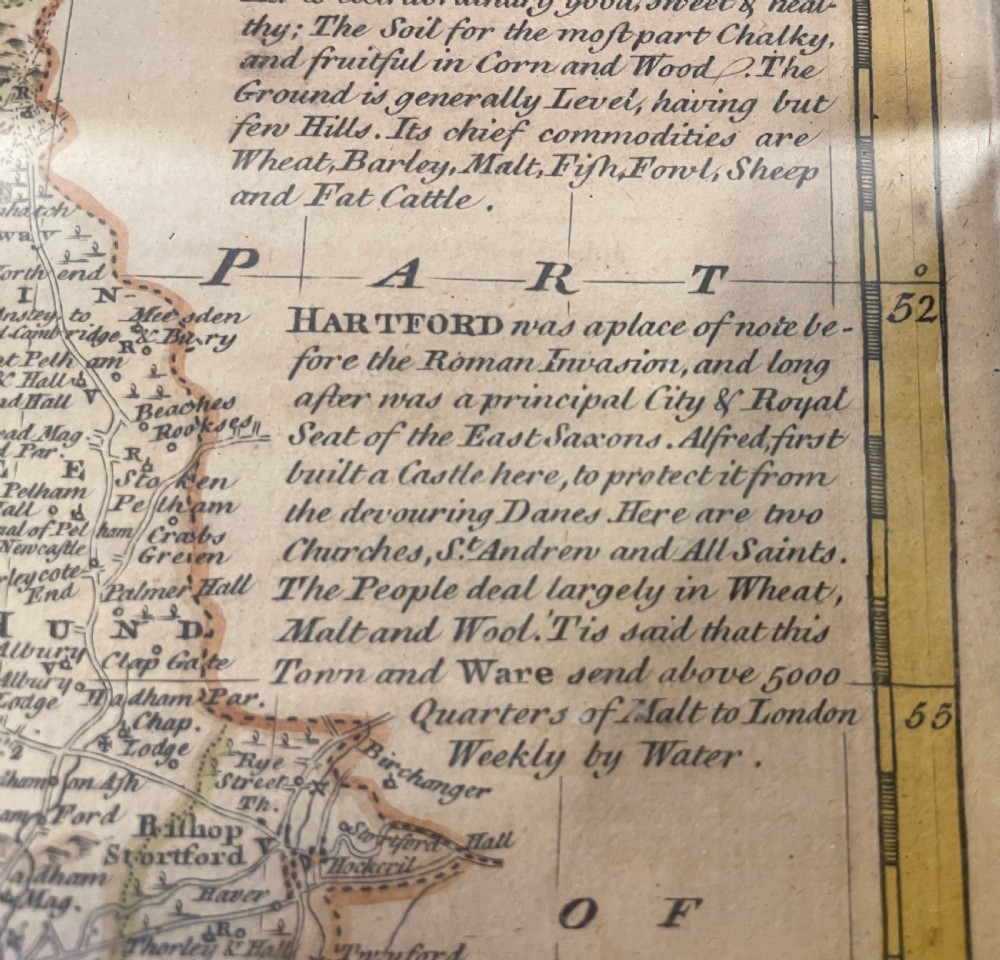 good, sweet & heal-
thy; The Soil for the most part Chalky,
and fruitful in Corn and Wood. The
Ground is generally Level, having but
few Hills. Its chief commodities are
Wheat, Barley, Malt, Fish, Fowl, Sheep
and Fat Cattle.
PART
HARTFORD was a place of note be-
fore the Roman Invasion, and long
after was a principal City & Royal
Seat of the East Saxons. Alfred, first
built a Castle here, to protect it from
the devouring Danes. Here are two
Churches, St. Andrew and All Saints.
The People deal largely in Wheat,
Malt and Wool. 'Tis said that this
Town and Ware send above 5000
Quarters of Malt to London
Weekly by Water.
OF
52
55
orth end
I N
Ansley, to
Cambridge
Meesden
& Bury
R
Pelham
& Hall
Hall
Beaches
Rookses
ead Mag.
Par.
R
E
Stoken
Pelham
Pelham
Hall
al of Pelham
Newcastle
Crabs
Green
End
Palmer Hall
UND
Albury
Clap Gate
Albury
Lodge
Hadham Par.
Chap.
Lodge
Rye
Street
Th.
Birchanger
on Ash
Ford
Bishop
Stortford
Stortford
Hall
Hockeril
adham
Mag.
Haver
Thorley & Hall
Twyford